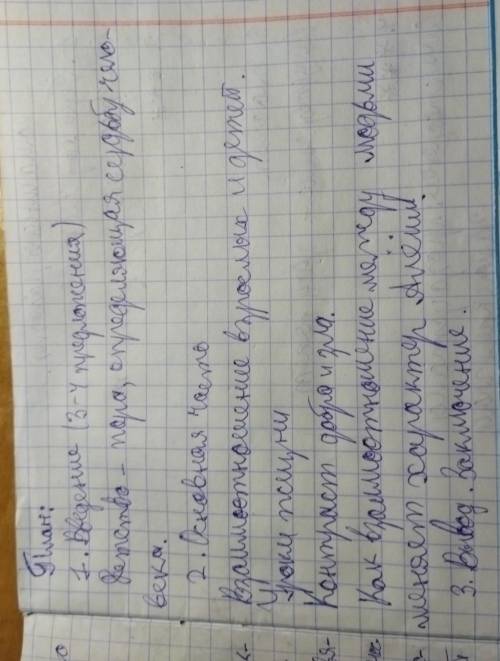 План:
1. Введение (3-4 предложения)
Детство - пора, определяющая судьбу чело-
века.
2. Основная часть
Взаимоотношение взрослых и детей.
Уроки жизни
Контраст добра и зла.
Как взаимоотношение между людьми
меняет характер Алёши.
3. Вывод. Заключение.